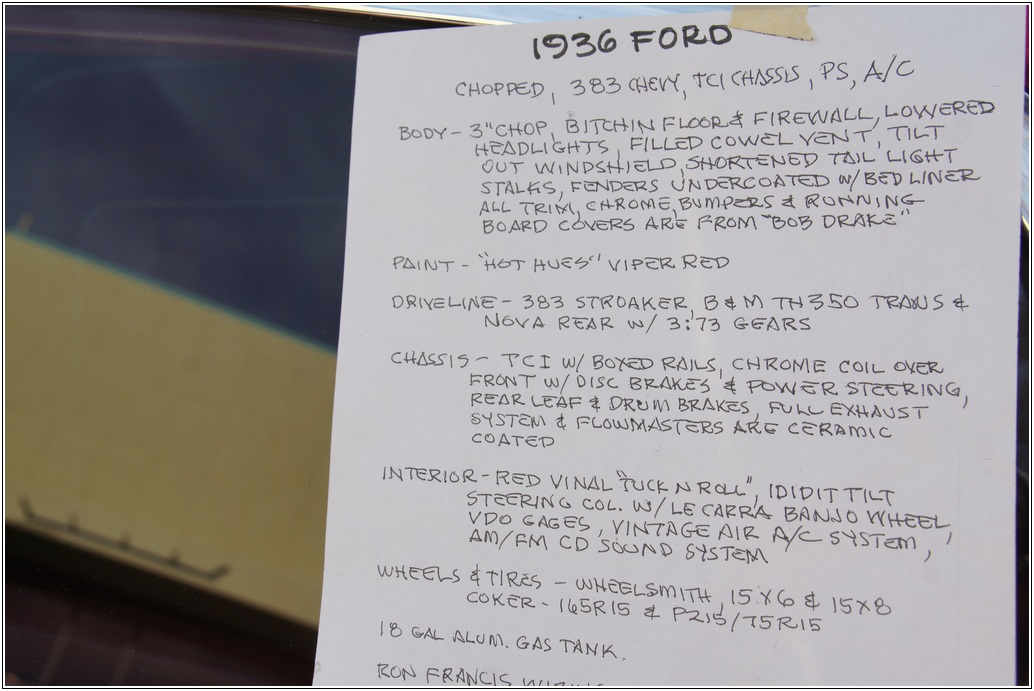 1936 FORD
CHOPPED, 383 CHEVY, TCI CHASSIS, PS, A/C
BODY - 3" CHOP, BITCHIN FLOOR & FIREWALL, LOWERED
HEADLIGHTS, FILLED COWEL VENT, TILT
OUT WINDSHIELD, SHORTENED TAIL LIGHT
STALKS, FENDERS UNDERCOATED W/ BED LINER
ALL TRIM, CHROME, BUMPERS & RUNNING
BOARD COVERS ARE FROM "BOB DRAKE"
PAINT - "HOT HUES" VIPER RED
DRIVELINE - 383 STROAKER, B & M TH350 TRANS &
NOVA REAR W/ 3:73 GEARS
CHASSIS - TCI W/ BOXED RAILS, CHROME COIL OVER
FRONT W/ DISC BRAKES & POWER STEERING,
REAR LEAF & DRUM BRAKES, FULL EXHAUST
SYSTEM & FLOWMASTERS ARE CERAMIC
COATED
INTERIOR - RED VINAL "TUCK N ROLL", IDIDIT TILT
STEERING COL. W/ LE CARRA BANJO WHEEL,
VDO GAGES, VINTAGE AIR A/C SYSTEM,
AM/FM CD SOUND SYSTEM
WHEELS & TIRES - WHEELSMITH, 15X6 & 15X8
COKER - 165R15 & P215/75R15
18 GAL ALUM. GAS TANK.
RON FRANCIS WIRING